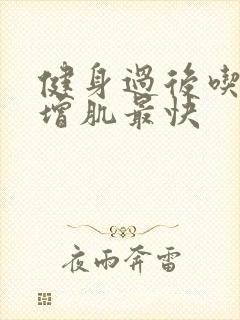 健身過後喫
增肌最快
夜雨奔雷